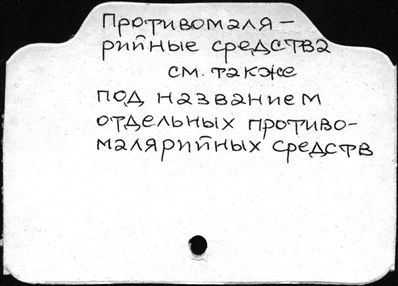 Противомаля-
рийные средства
см. также
под названием
отдельных противо-
малярийных средств